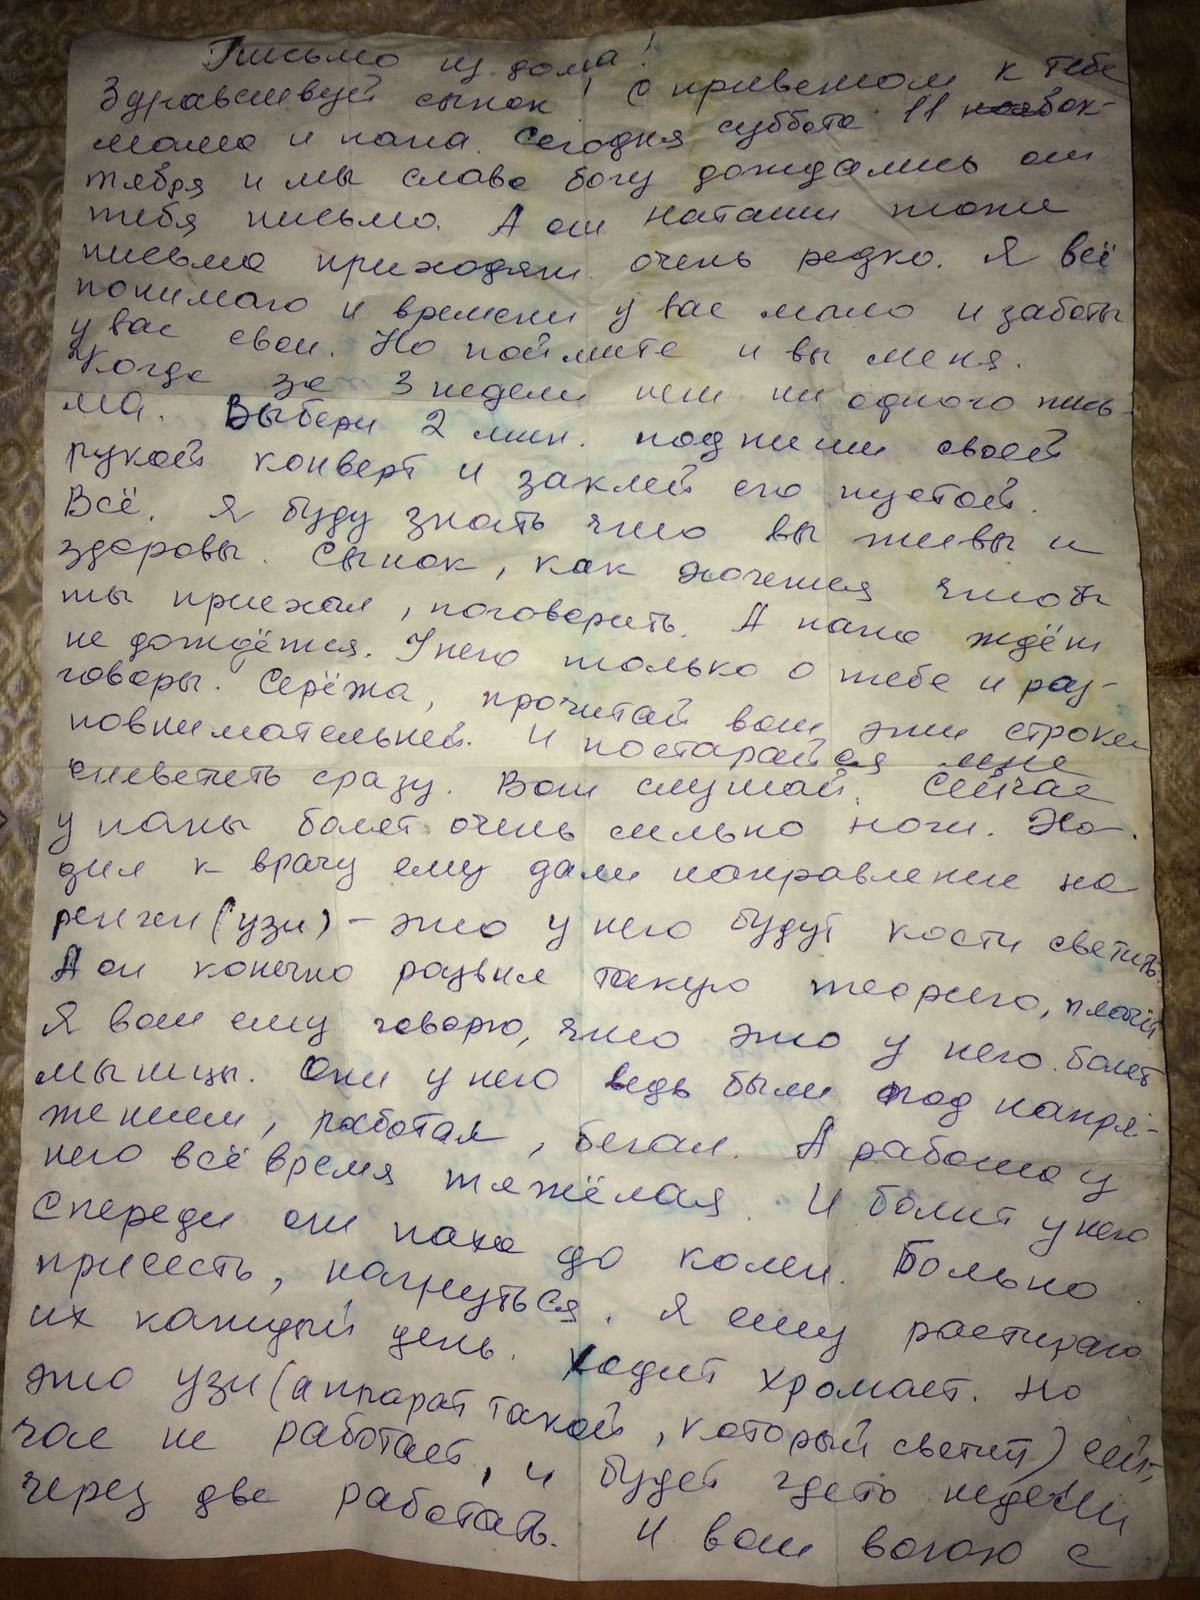 Письмо из дома!
Здравствуй сынок! С приветом к тебе
мама и папа. Сегодня суббота 11 ок-
тября и мы слава богу дождались от
тебя письмо. А от Наташи тоже
письма приходят очень редко. Я всё
понимаю и времени у вас мало и заботы
у вас свои. Но поймите и вы меня.
Когда за 3 недели нет ни одного пись-
ма. Выбери 2 мин. подпиши своей
рукой конверт и заклей его пустой.
Всё. Я буду знать что вы живы и
здоровы. Сынок, как хочется чтобы
ты приехал, поговорить. А папа ждёт
не дождётся. У него только о тебе и раз-
говоры. Серёжа, прочитай вот эти строки
повнимательней. И постарайся мне
ответить сразу. Вот слушай. Сейчас
у папы болят очень сильно ноги. Хо-
дил к врачу ему дали направление на
рентген (узи) - это у него будут кости светить.
А он конечно развил такую теорию,
Я вот ему говорю, что это у него болят
мышцы. Они у него ведь были под напря-
жением, работал, бегал. А работа у
него всё время тяжёлая. И болит у него
спереди от паха до колен. Больно
присесть, нагнуться. Я ему растираю
их каждый день. Ходит хромает. Но
это узи (аппарат такой, который светит) сей-
час не работает, и будет гдето недели
через две работать. И вот воюю с